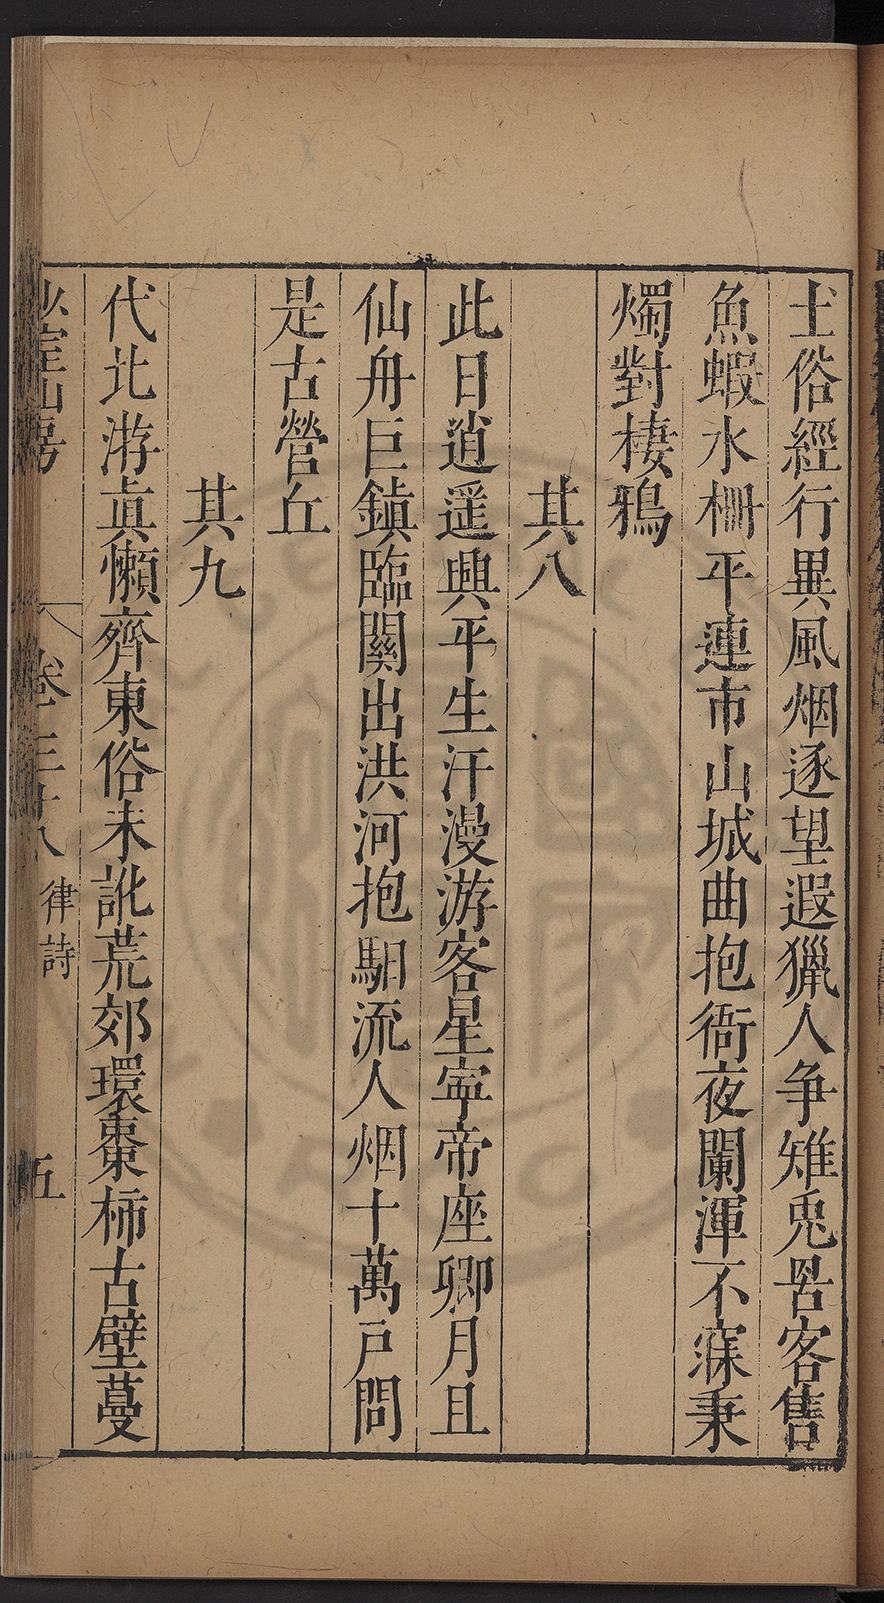 土俗經行異風烟逐望遐獵人争雉兎罟客售
魚蝦水柵平連市山城曲抱衙夜闌渾不寐秉
燭對棲鴉
其八
此日逍遥興平生汗漫游客星寧帝座卿月且
仙舟巨鎮臨關出洪河抱馹流人烟十萬戶問
是古營丘
其九
代北游真懶齊東俗未訛荒郊環棗柿古壁蔓
少室山房
卷三十八
律詩
五